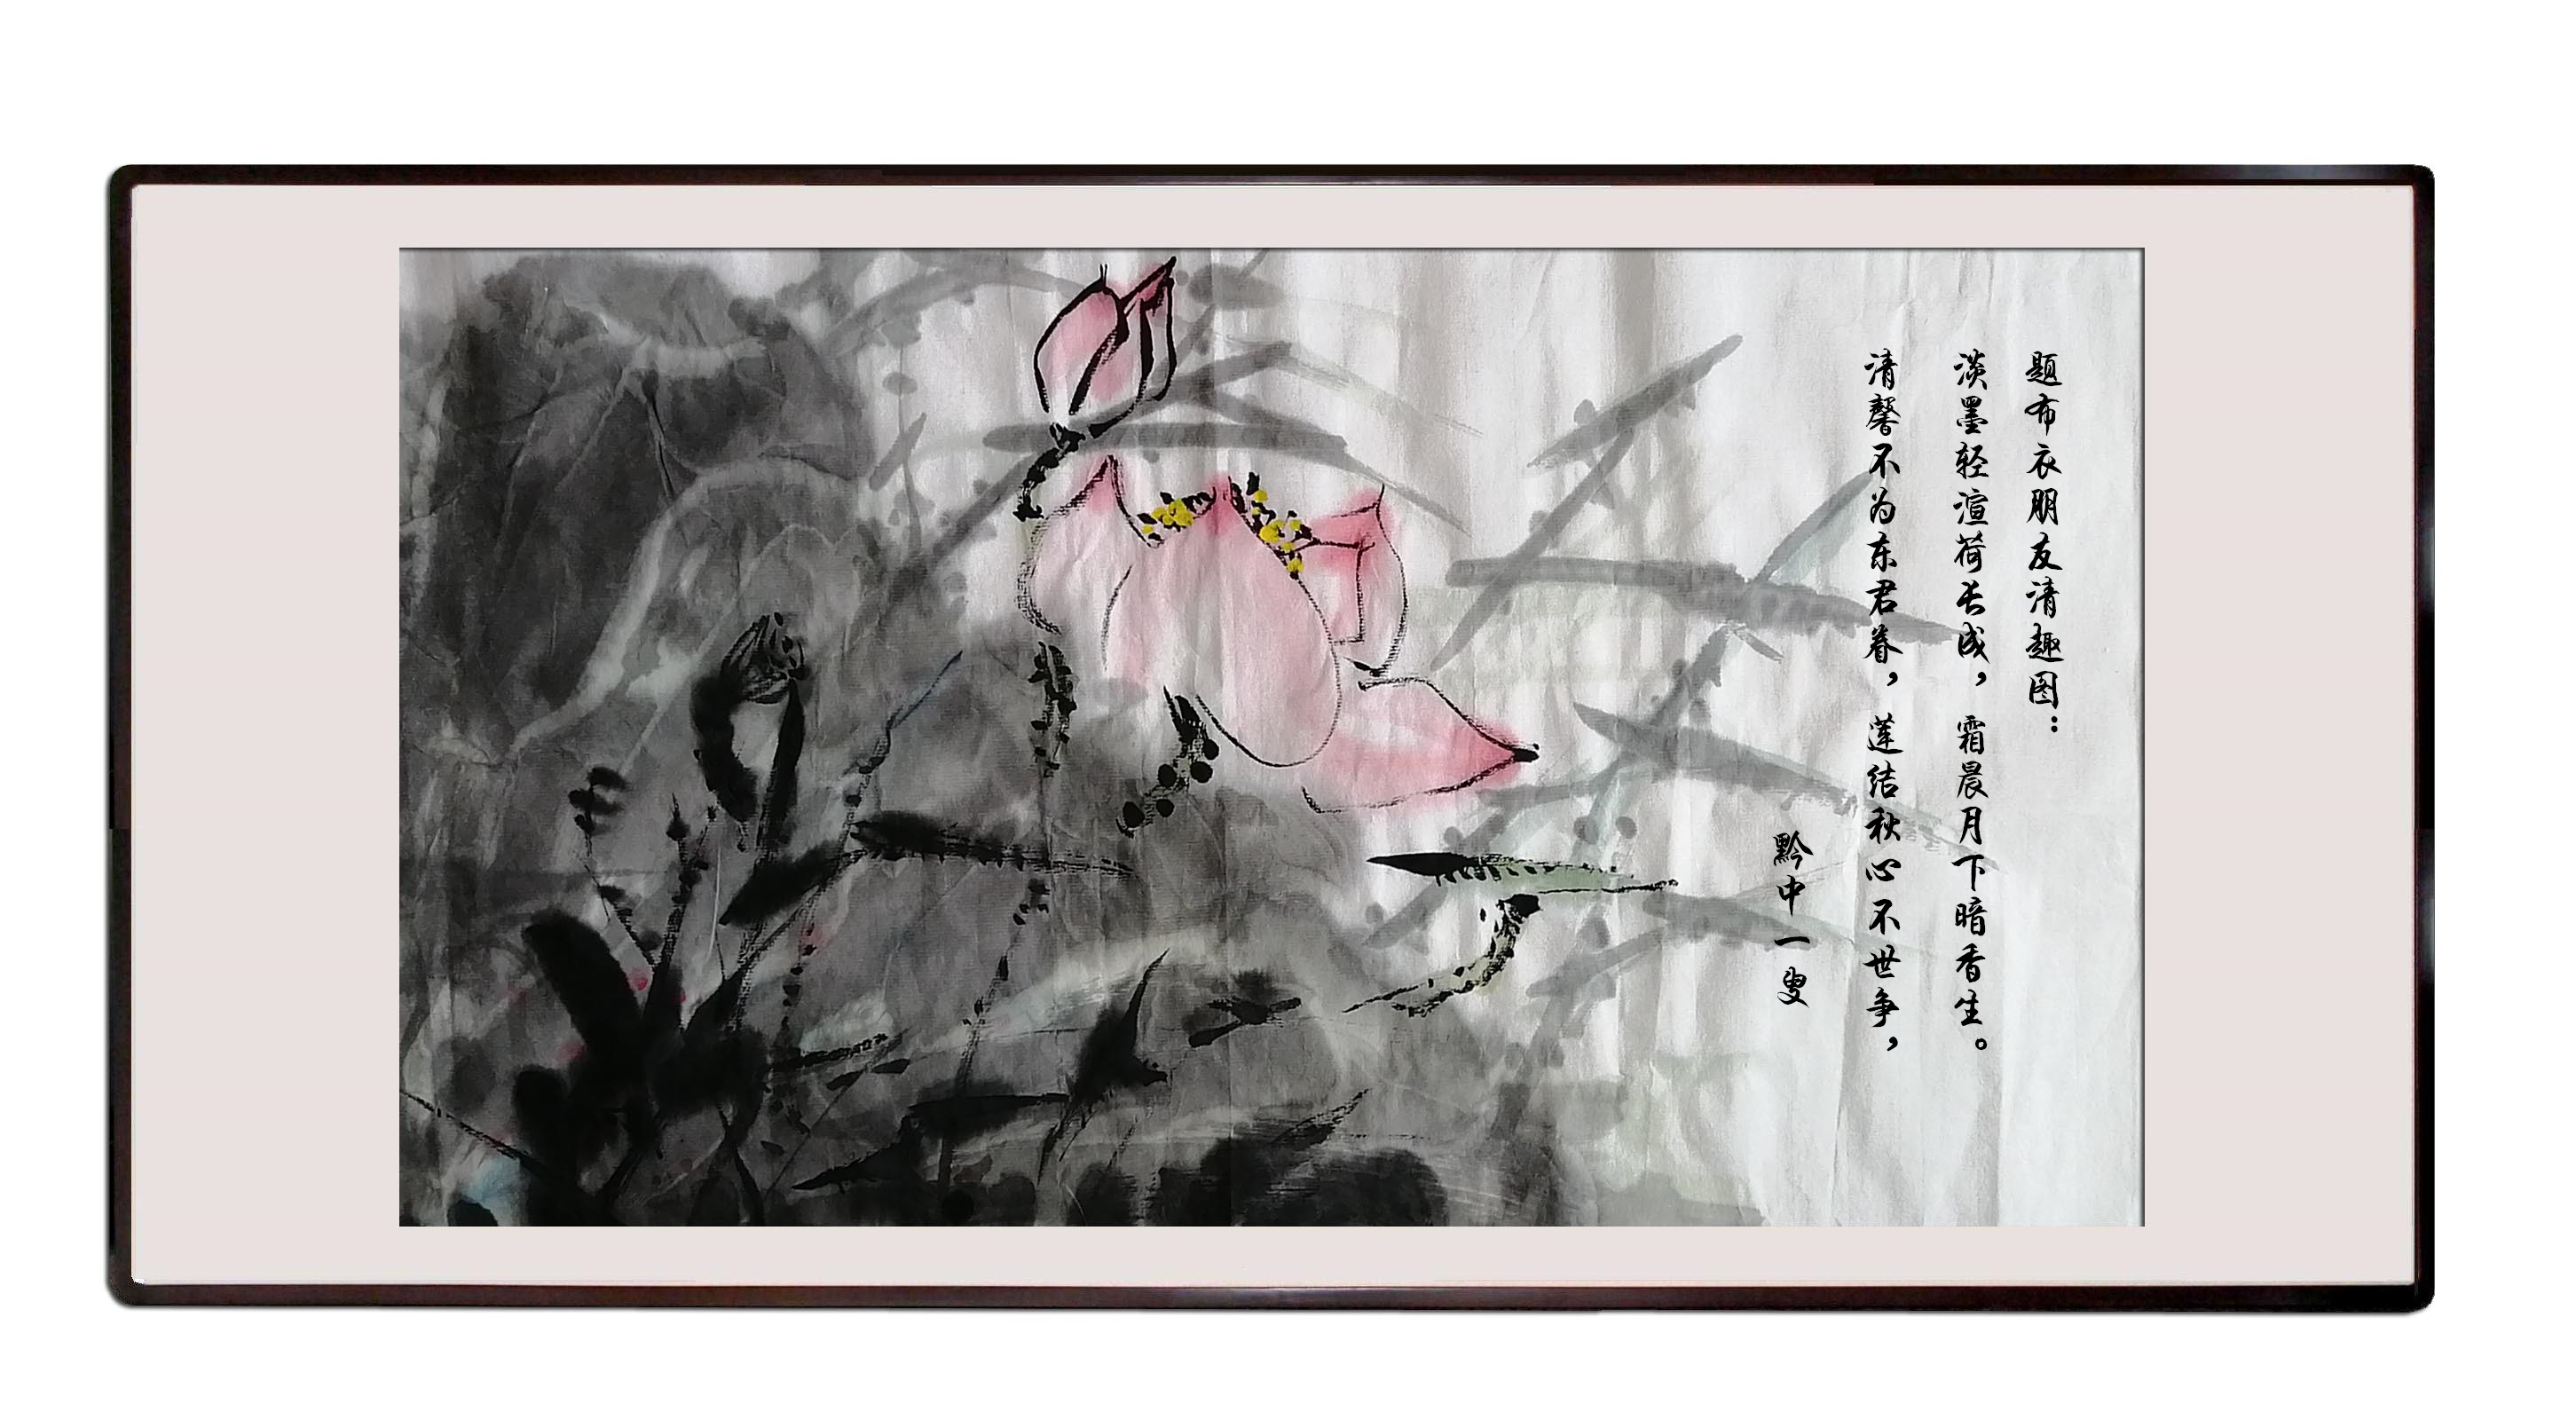 题布衣朋友清趣图：
淡墨轻渲荷长成，霜晨月下暗香生。
清馨不为东君眷，莲结秋心不世争，
黔中一叟